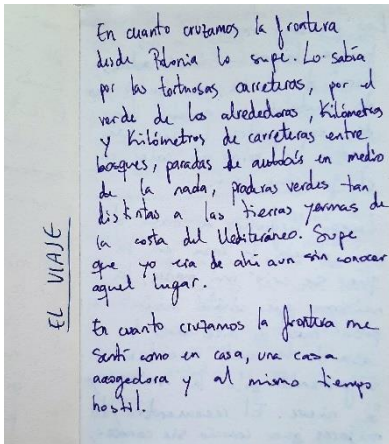 EL VIAJE
En cuanto cruzamos la frontera
desde Polonia lo supe. Lo sabía
por las tortuosas carreteras, por el
verde de los alrededores, kilómetros
y kilómetros de carreteras entre
bosques, paradas de autobús en medio
de la nada, praderas verdes tan
distintas a las tierras yermas de
la costa del Mediteráneo. Supe
que yo era de ahí aun sin conocer
aquel lugar.
En cuanto cruzamos la frontera me
sentí como en casa, una casa
acogedora y al mismo tiempo
hostil.